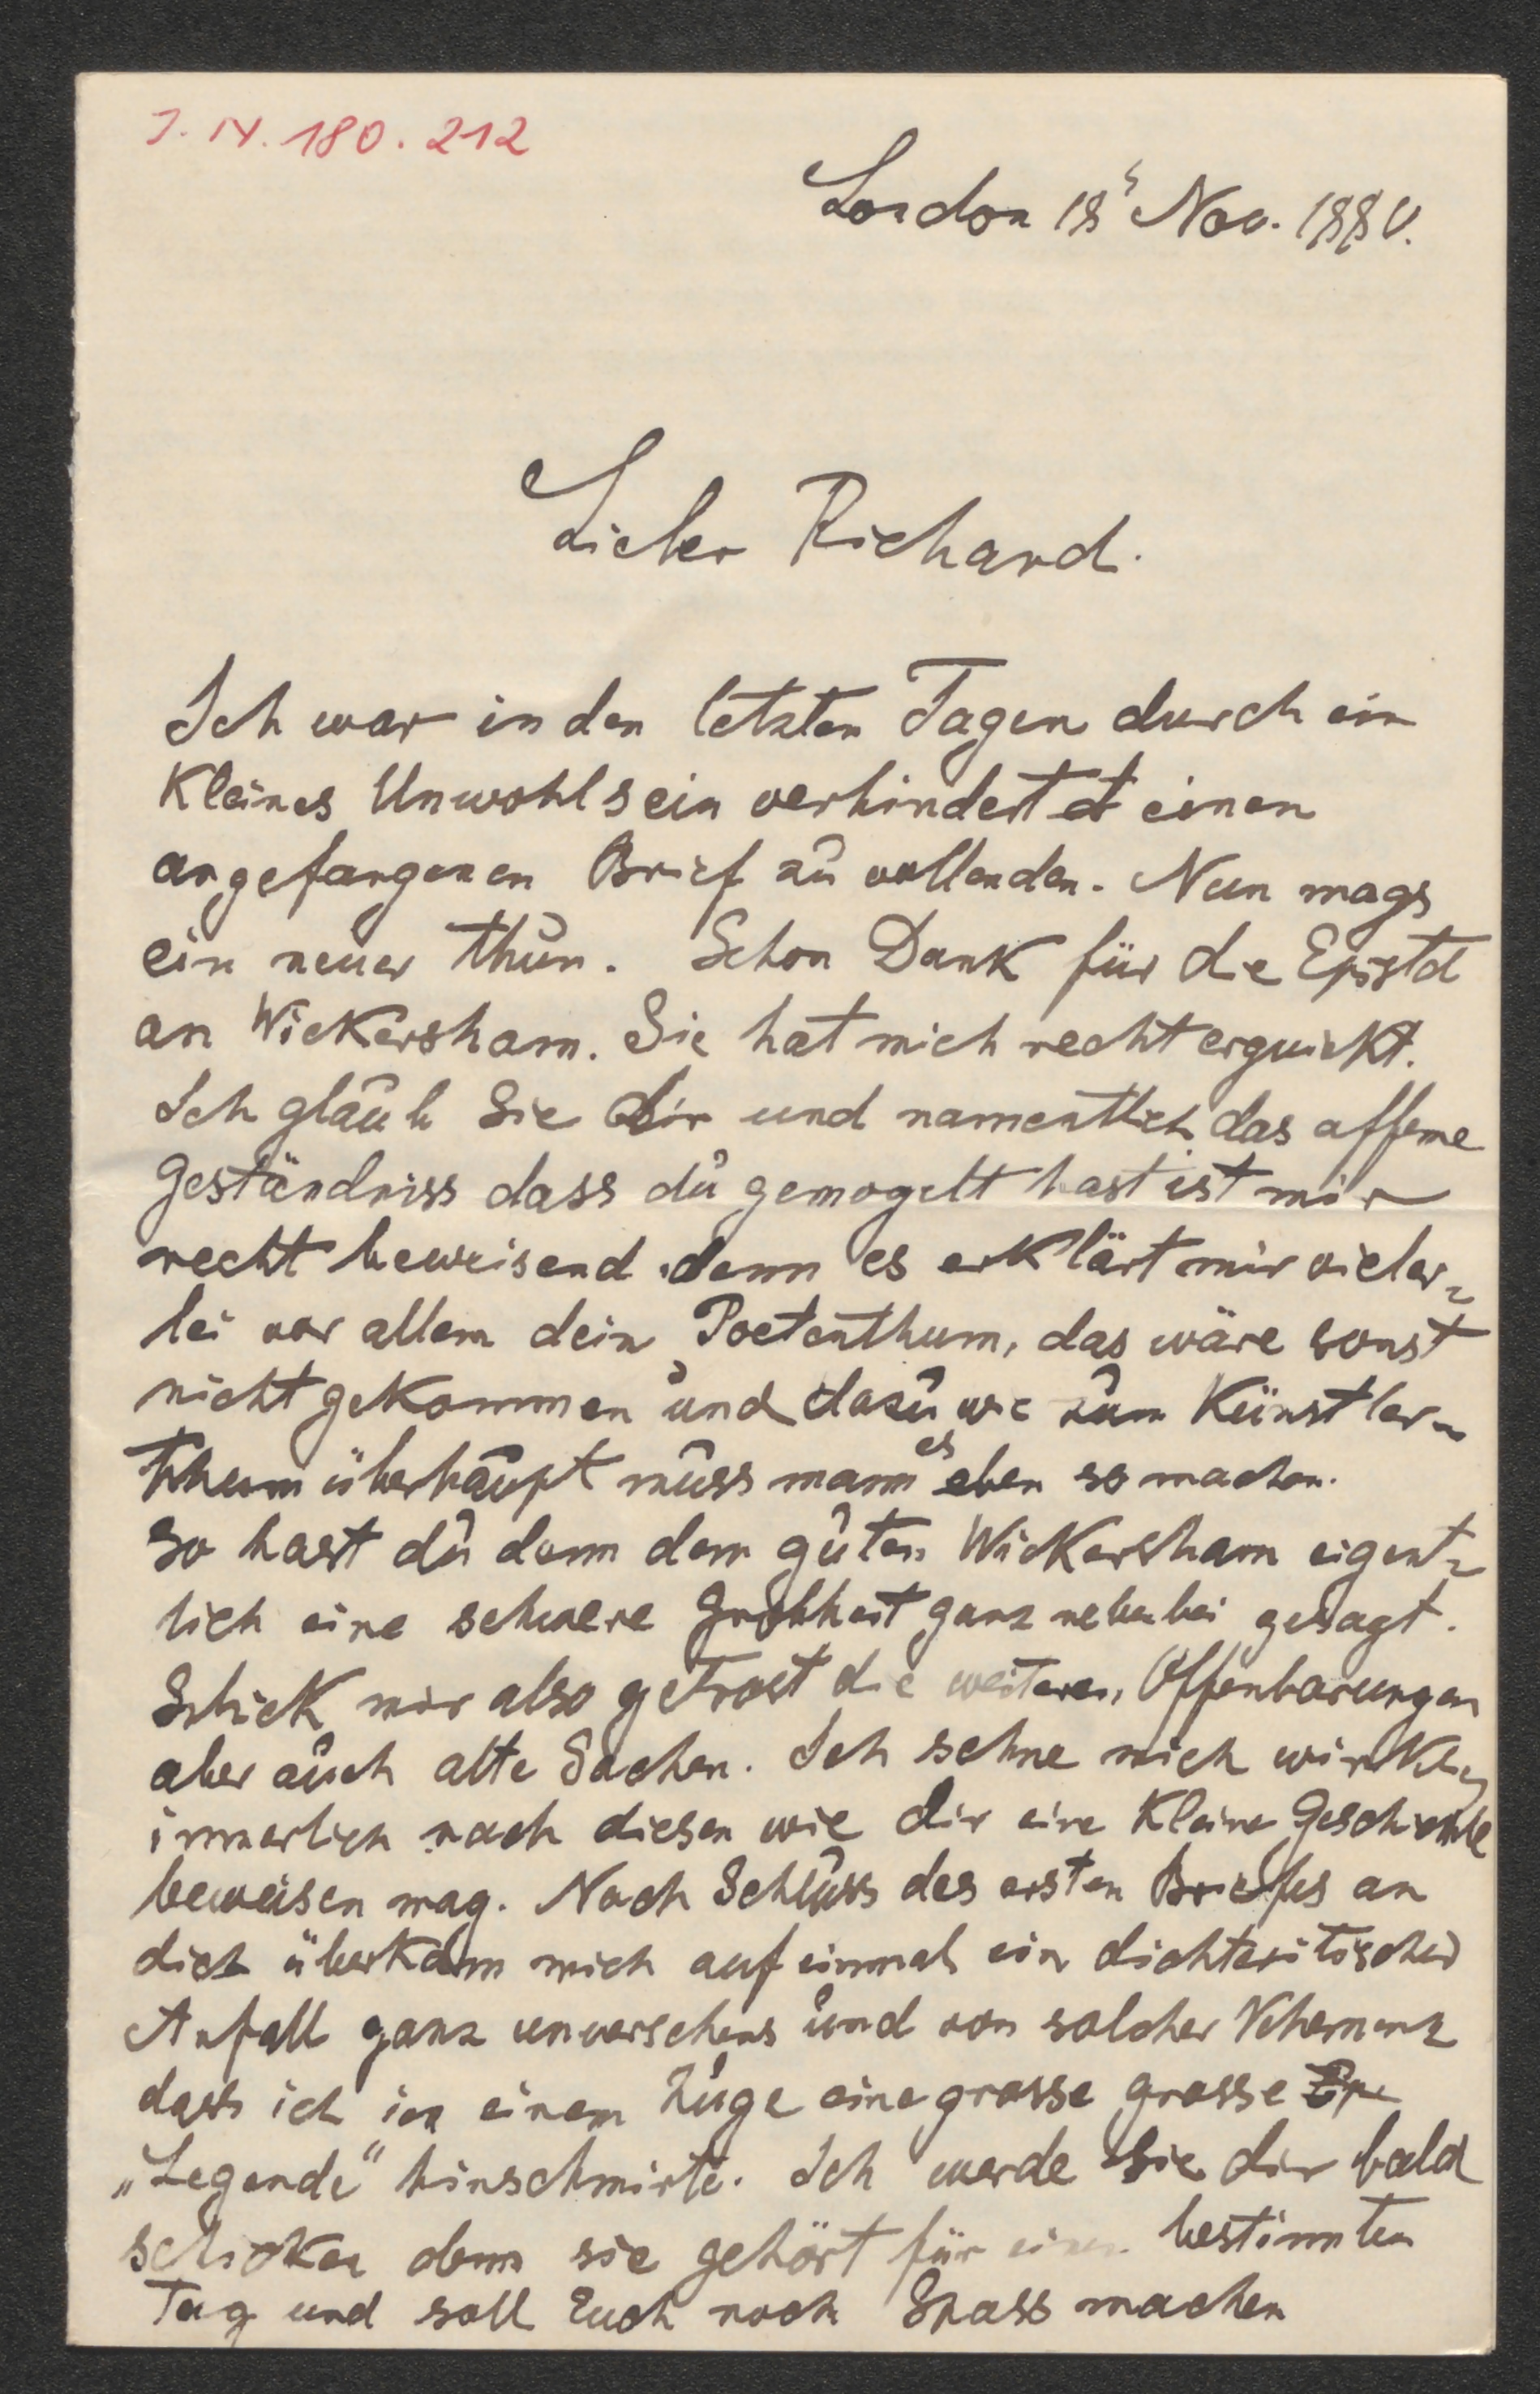 J. N. 180.212
London 18' Nov. 1880.
Lieber Richard.
Ich war in den letzten Tagen durch ein
kleines Unwohlsein verhindert einen
angefangenen Brief zu vollenden. Nun mags
ein neuer thun. Schon Dank für die Epistel
an Wickersham. Sie hat mich recht erquickt.
Ich glaub Sie dir und namentlich das offene
Geständniss dass du gemogelt hast ist mir
recht beweisend, denn es erklärt mir vieler-
lei vor allem dein Poetenthum, das wäre sonst
nicht gekommen und dazu wie zum Künstler-
thum überhaupt muss mann es eben so machen.
So hast du denn dem guten Wickersham eigent-
lich eine schwere Grobheit ganz nebenbei gesagt.
Schick mir also getrost die weiteren Offenbarungen
aber auch alte Sachen. Ich sehne mich wirklich
innerlich nach diesen wie dir eine kleine Geschichte
beweisen mag. Nach Schluss des ersten Briefes an
dich überkam mich auf einmal ein dichteritischer
Anfall ganz unversehens und von solcher Vehemenz
dass ich in einem Zuge eine grosse grosse Ep
„Legende“ hinschmirte. Ich werde Sie dir bald
schicken denn sie gehört für einen bestimmten
Tag und soll Euch noch Spass machen